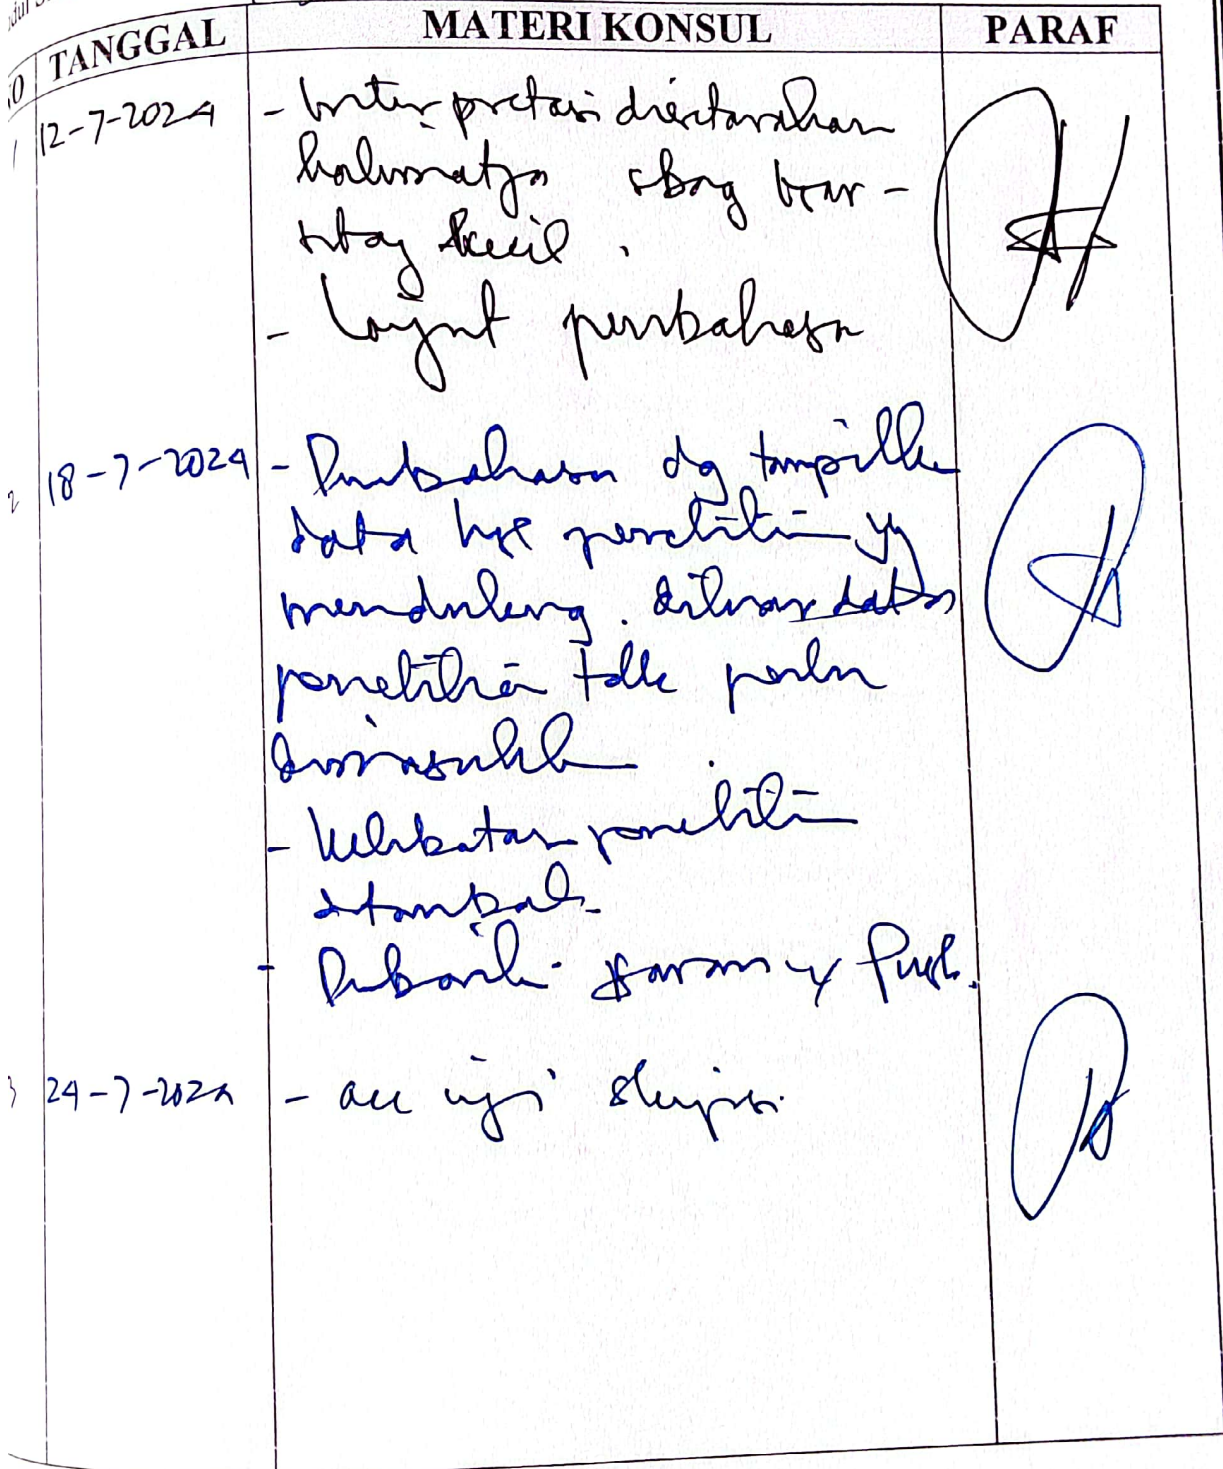 TANGGAL MATERI KONSUL PARAF
1 12-7-2024 - Interpretasi
kalimatnya sbag besar -
sbag kecil.
- Lanjut pembahasan
2 18-7-2024 - Pembahasan dg tampilkn
data penelitian yg
mendukung. diluar data
penelitian tdk perlu
dimasukkn
- penelitian
ditambah
- Perbaiki saran
3 24-7-2024 - acc uji skripsi.